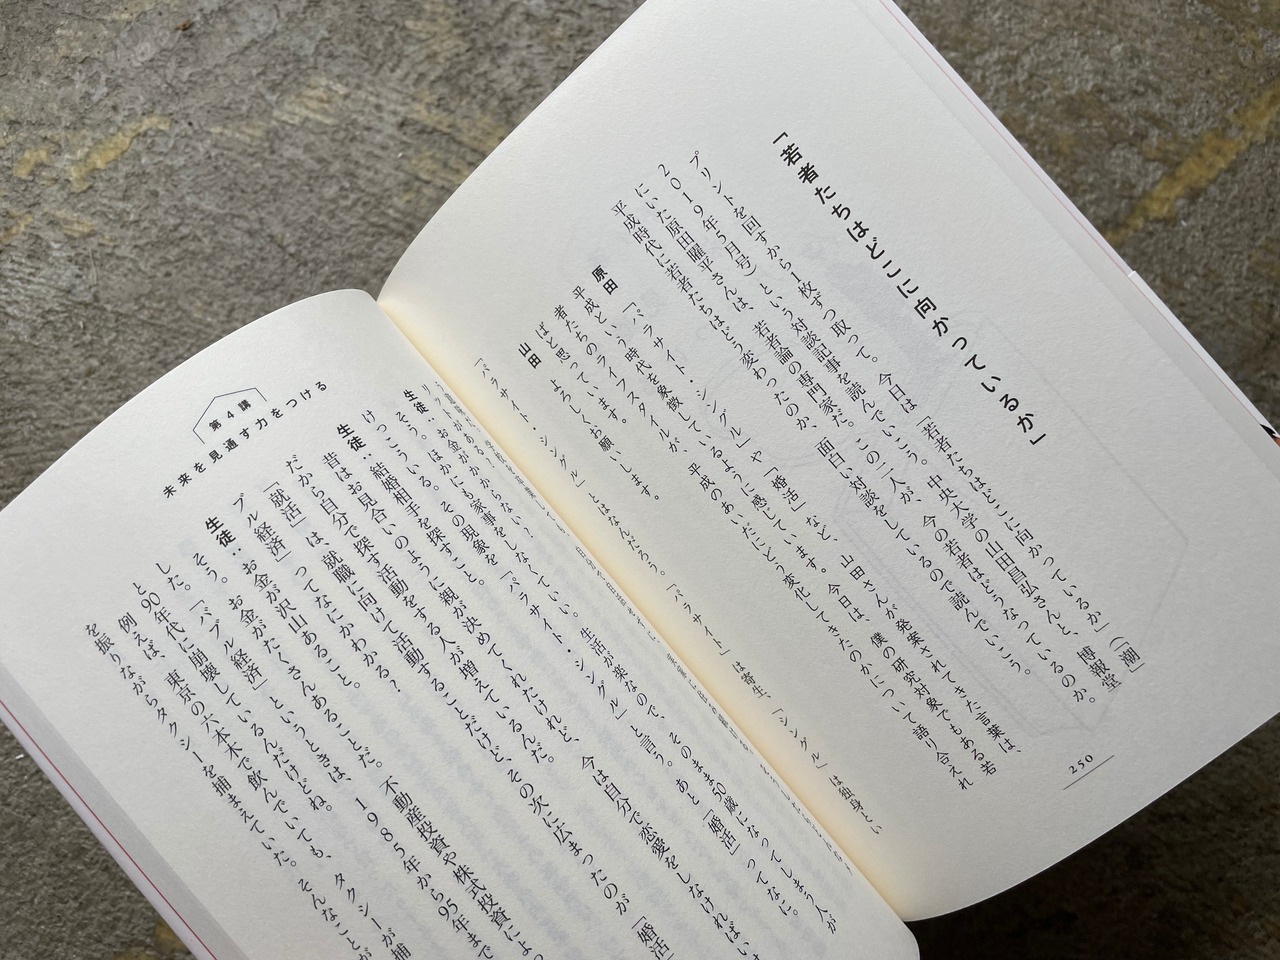 「若者たちはどこに向かっているか」
プリントを回すから1枚ずつ取って。今日は「若者たちはどこに向かっているか」(「潮」
2019年5月号)という対談記事を読んでいこう。中央大学の山田昌弘さんと、博報堂
にいた原田曜平さんは、若者論の専門家だ。この二人が、今の若者はどうなっているのか。
平成時代に若者たちはどう変わったのか、面白い対談をしているので読んでいこう。
原田 「パラサイト・シングル」や「婚活」など、山田さんが発案されてきた言葉は、
平成という時代を象徴しているように感じています。今日は、僕の研究対象でもある若
者たちのライフスタイルが、平成のあいだにどう変化してきたのかについて語り合えれ
ばと思っています。
山田 よろしくお願いします。
「パラサイト・シングル」とはなんだろう。「パラサイト」は寄生、「シングル」は独身とい
250
第4講
未来を見通す力をつける
生徒:お金がかからない!
そう。ほかにも家事をしなくていい。生活が楽なので、そのまま50歳になってしまう人が
けっこういる。その現象を「パラサイト・シングル」と言う。あと「婚活」ってなに。
生徒:結婚相手を探すこと。
昔はお見合いのように親が決めてくれたけれど、今は自分で恋愛をしなければい
だから自分で探す活動をする人が増えているんだ。
「就活」は、就職に向けて活動することだけど、その次に広まったのが「婚活」
ブル経済」ってなにかわかる?
生徒:お金が沢山あること。
そう。お金がたくさんあることだ。不動産投資や株式投資によっ
した。「バブル経済」というときは、1985年から95年まで
と90年代に崩壊しているんだけどね。
例えば、東京の六本木で飲んでいても、タクシーが捕
を振りながらタクシーを捕まえていた。そんなことが